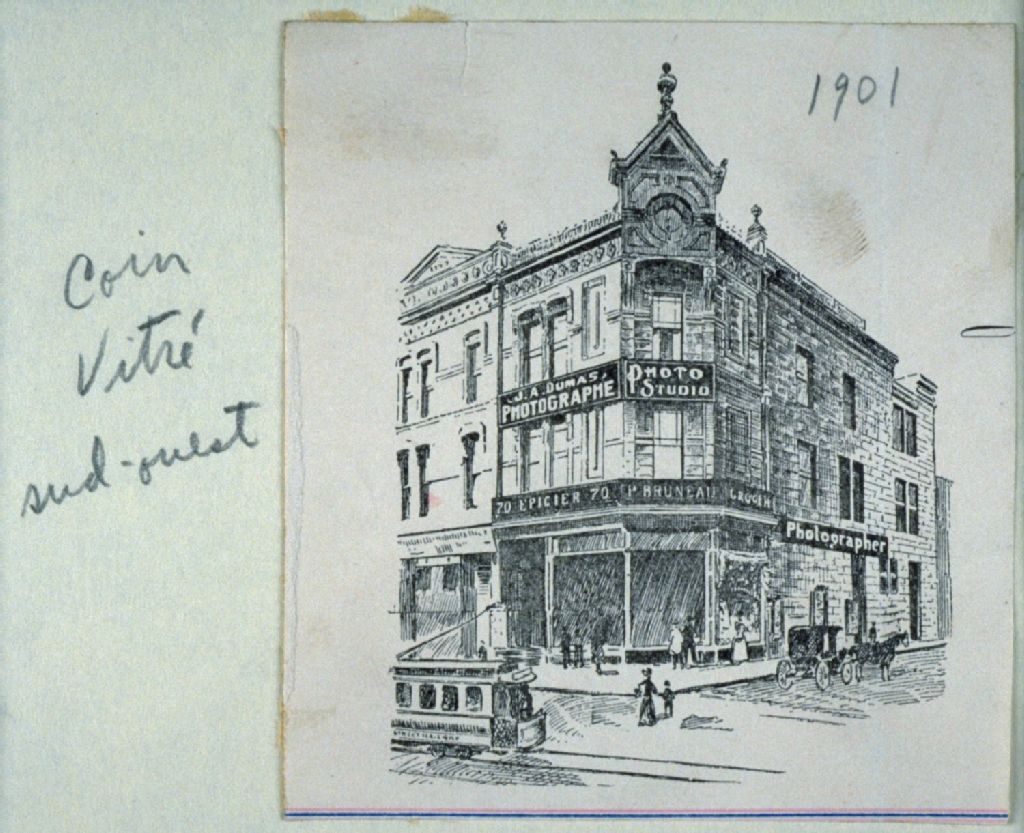 1901
Coin
Vitré
sud-ouest
J. A. DUMAS,
PHOTOGRAPHE
PHOTO
STUDIO
70 EPICIER 70 P BRUNEAU GROCER
Photographer
STREET RAILWAY